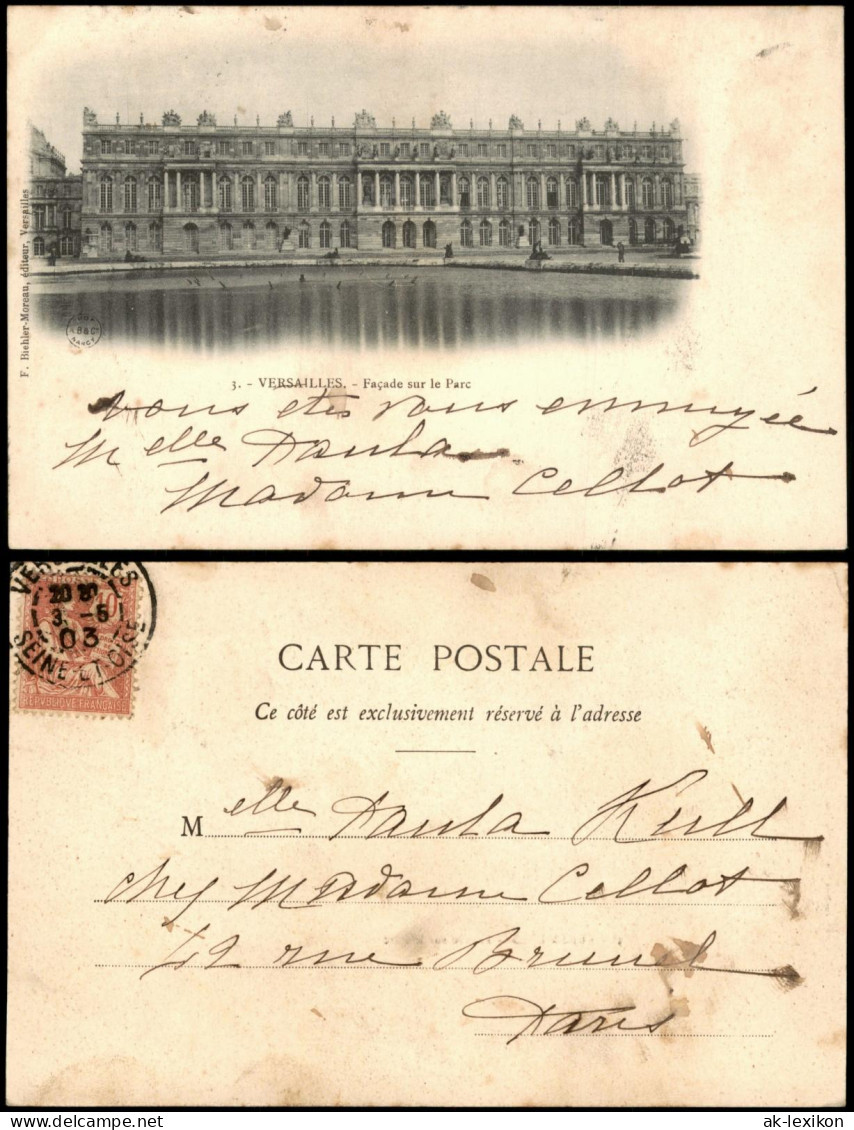 F. Biehler-Moreau, éditeur, Versailles
3. - VERSAILLES. - Façade sur le Parc
vous etes vous ennuyée
Melle Paula
Madame Cellot
VERSAILLES
20 20
3 -5
03
SEINE ET OISE
10
REPUBLIQUE FRANÇAISE
CARTE POSTALE
Ce côté est exclusivement réservé à l'adresse
Melle Paula Kull
chez Madame Cellot
42 rue Brunel
Paris
ak-lexikon